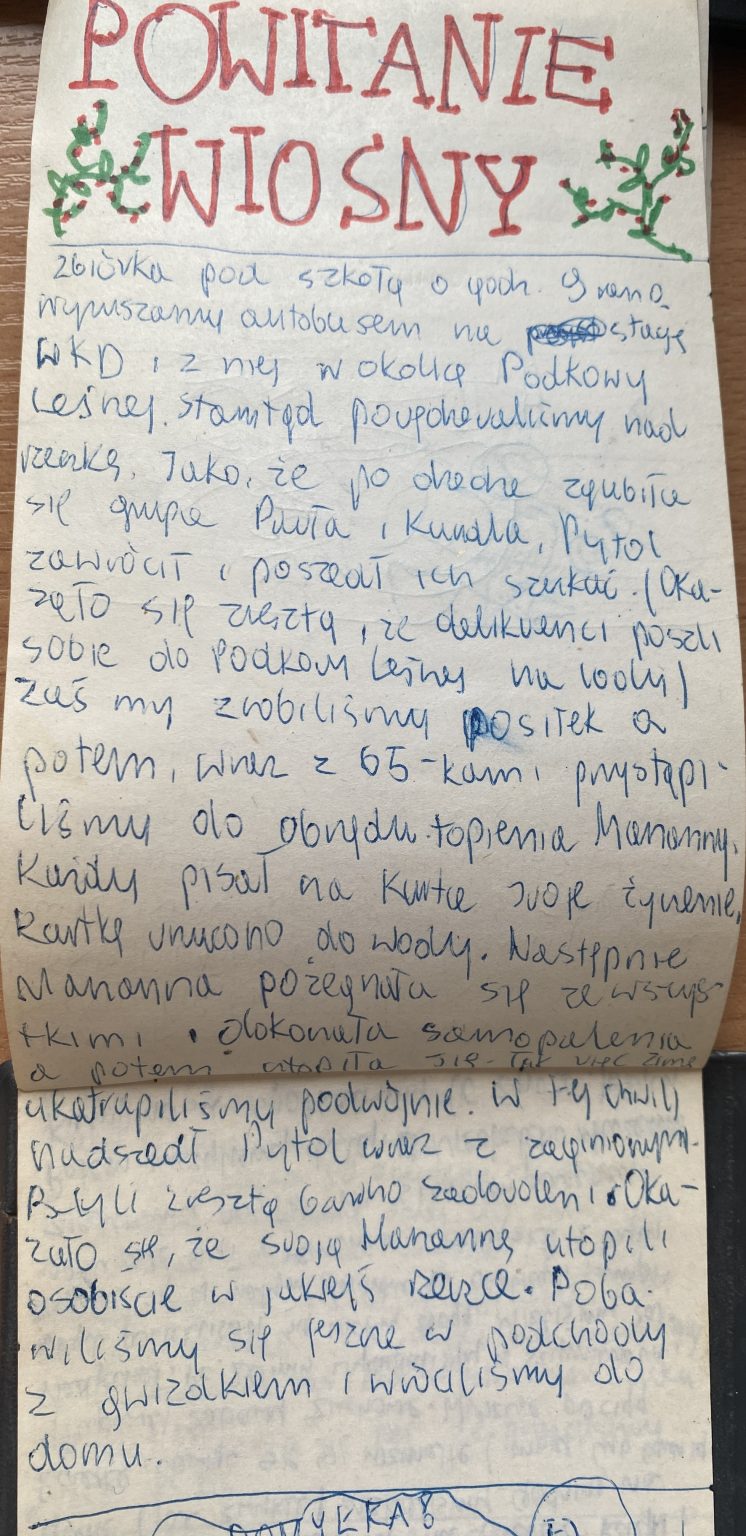 POWITANIE
WIOSNY
Zbiórka pod szkołą o godz. 9 rano.
wyruszamy autobusem na stację
WKD i z niej w okolicę Podkowy
Leśnej. Stamtąd powędrowaliśmy nad
rzeczkę. Jako, że po drodze zgubiła
się grupa Pawła i Kunala, Pytol
zawrócił i poszedł ich szukać. (Oka-
zało się zresztą, że delikwenci poszli
sobie do Podkowy Leśnej na lody)
Zaś my zrobiliśmy posiłek a
potem, wraz z 65-kami przystąpi-
liśmy do obrzędu topienia Marzanny.
Każdy pisał na kartce swoje życzenie,
kartkę wrzucono do wody. Następnie
Marzanna pożegnała się ze wszys-
tkimi i dokonała samopalenia
a potem utopiła się. Tak więc zimę
ukatrupiliśmy podwójnie. W tej chwili
nadszedł Pytol wraz z zaginionymi.
Byli zresztą bardzo zadowoleni. Oka-
zało się, że swoją Marzannę utopili
osobiście w jakiejś rzeczce. Poba-
wiliśmy się jeszcze w podchody
z gwizdkiem i wróciliśmy do
domu.